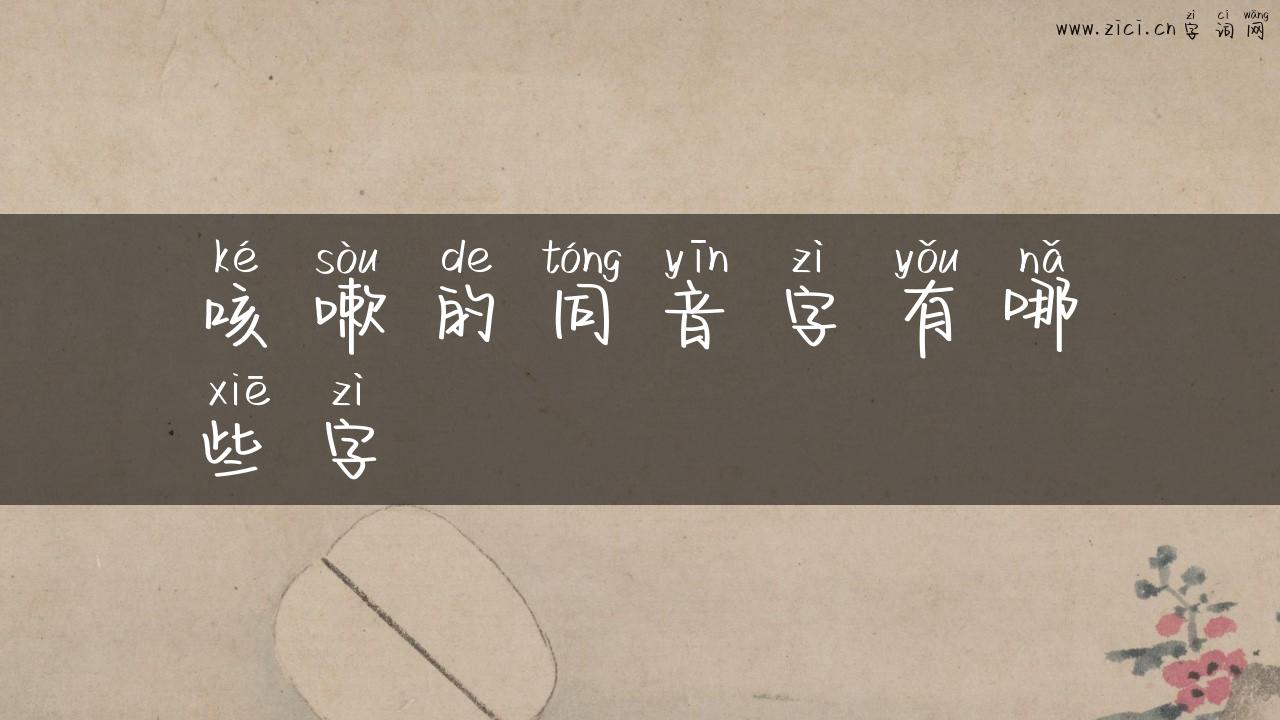 zì cí wǎng
www.zici.cn字词网
ké sòu de tóng yīn zì yǒu nǎ
咳嗽的同音字有哪
xiē zì
些字